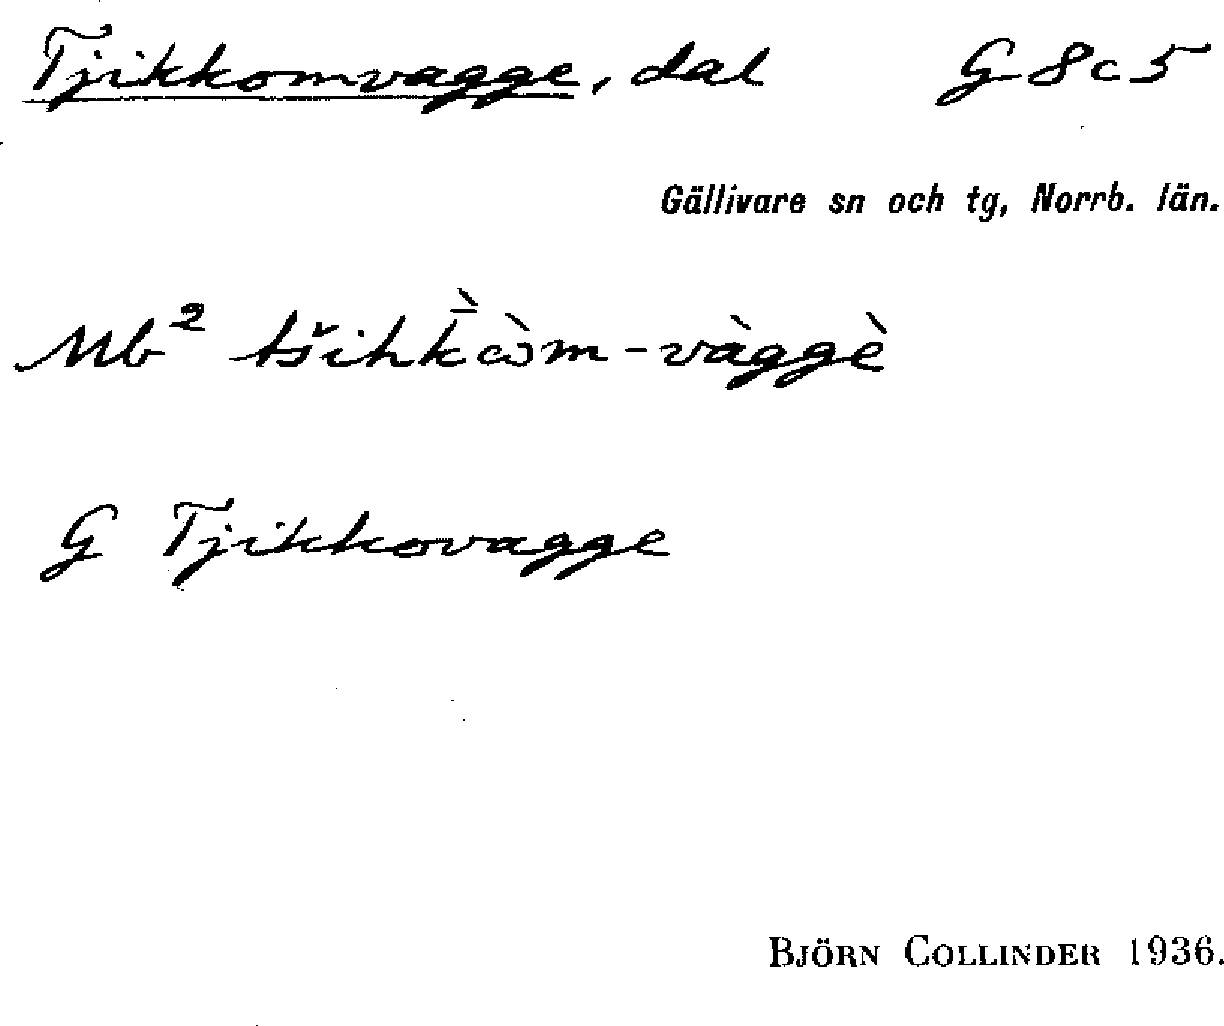 Tjikkomvagge, dal G 8 c 5
Gällivare sn och tg, Norrb. län.
Mb² tšihk̄̀ɷ̀m-vàggè
G Tjikkovagge
BJÖRN COLLINDER 1936.